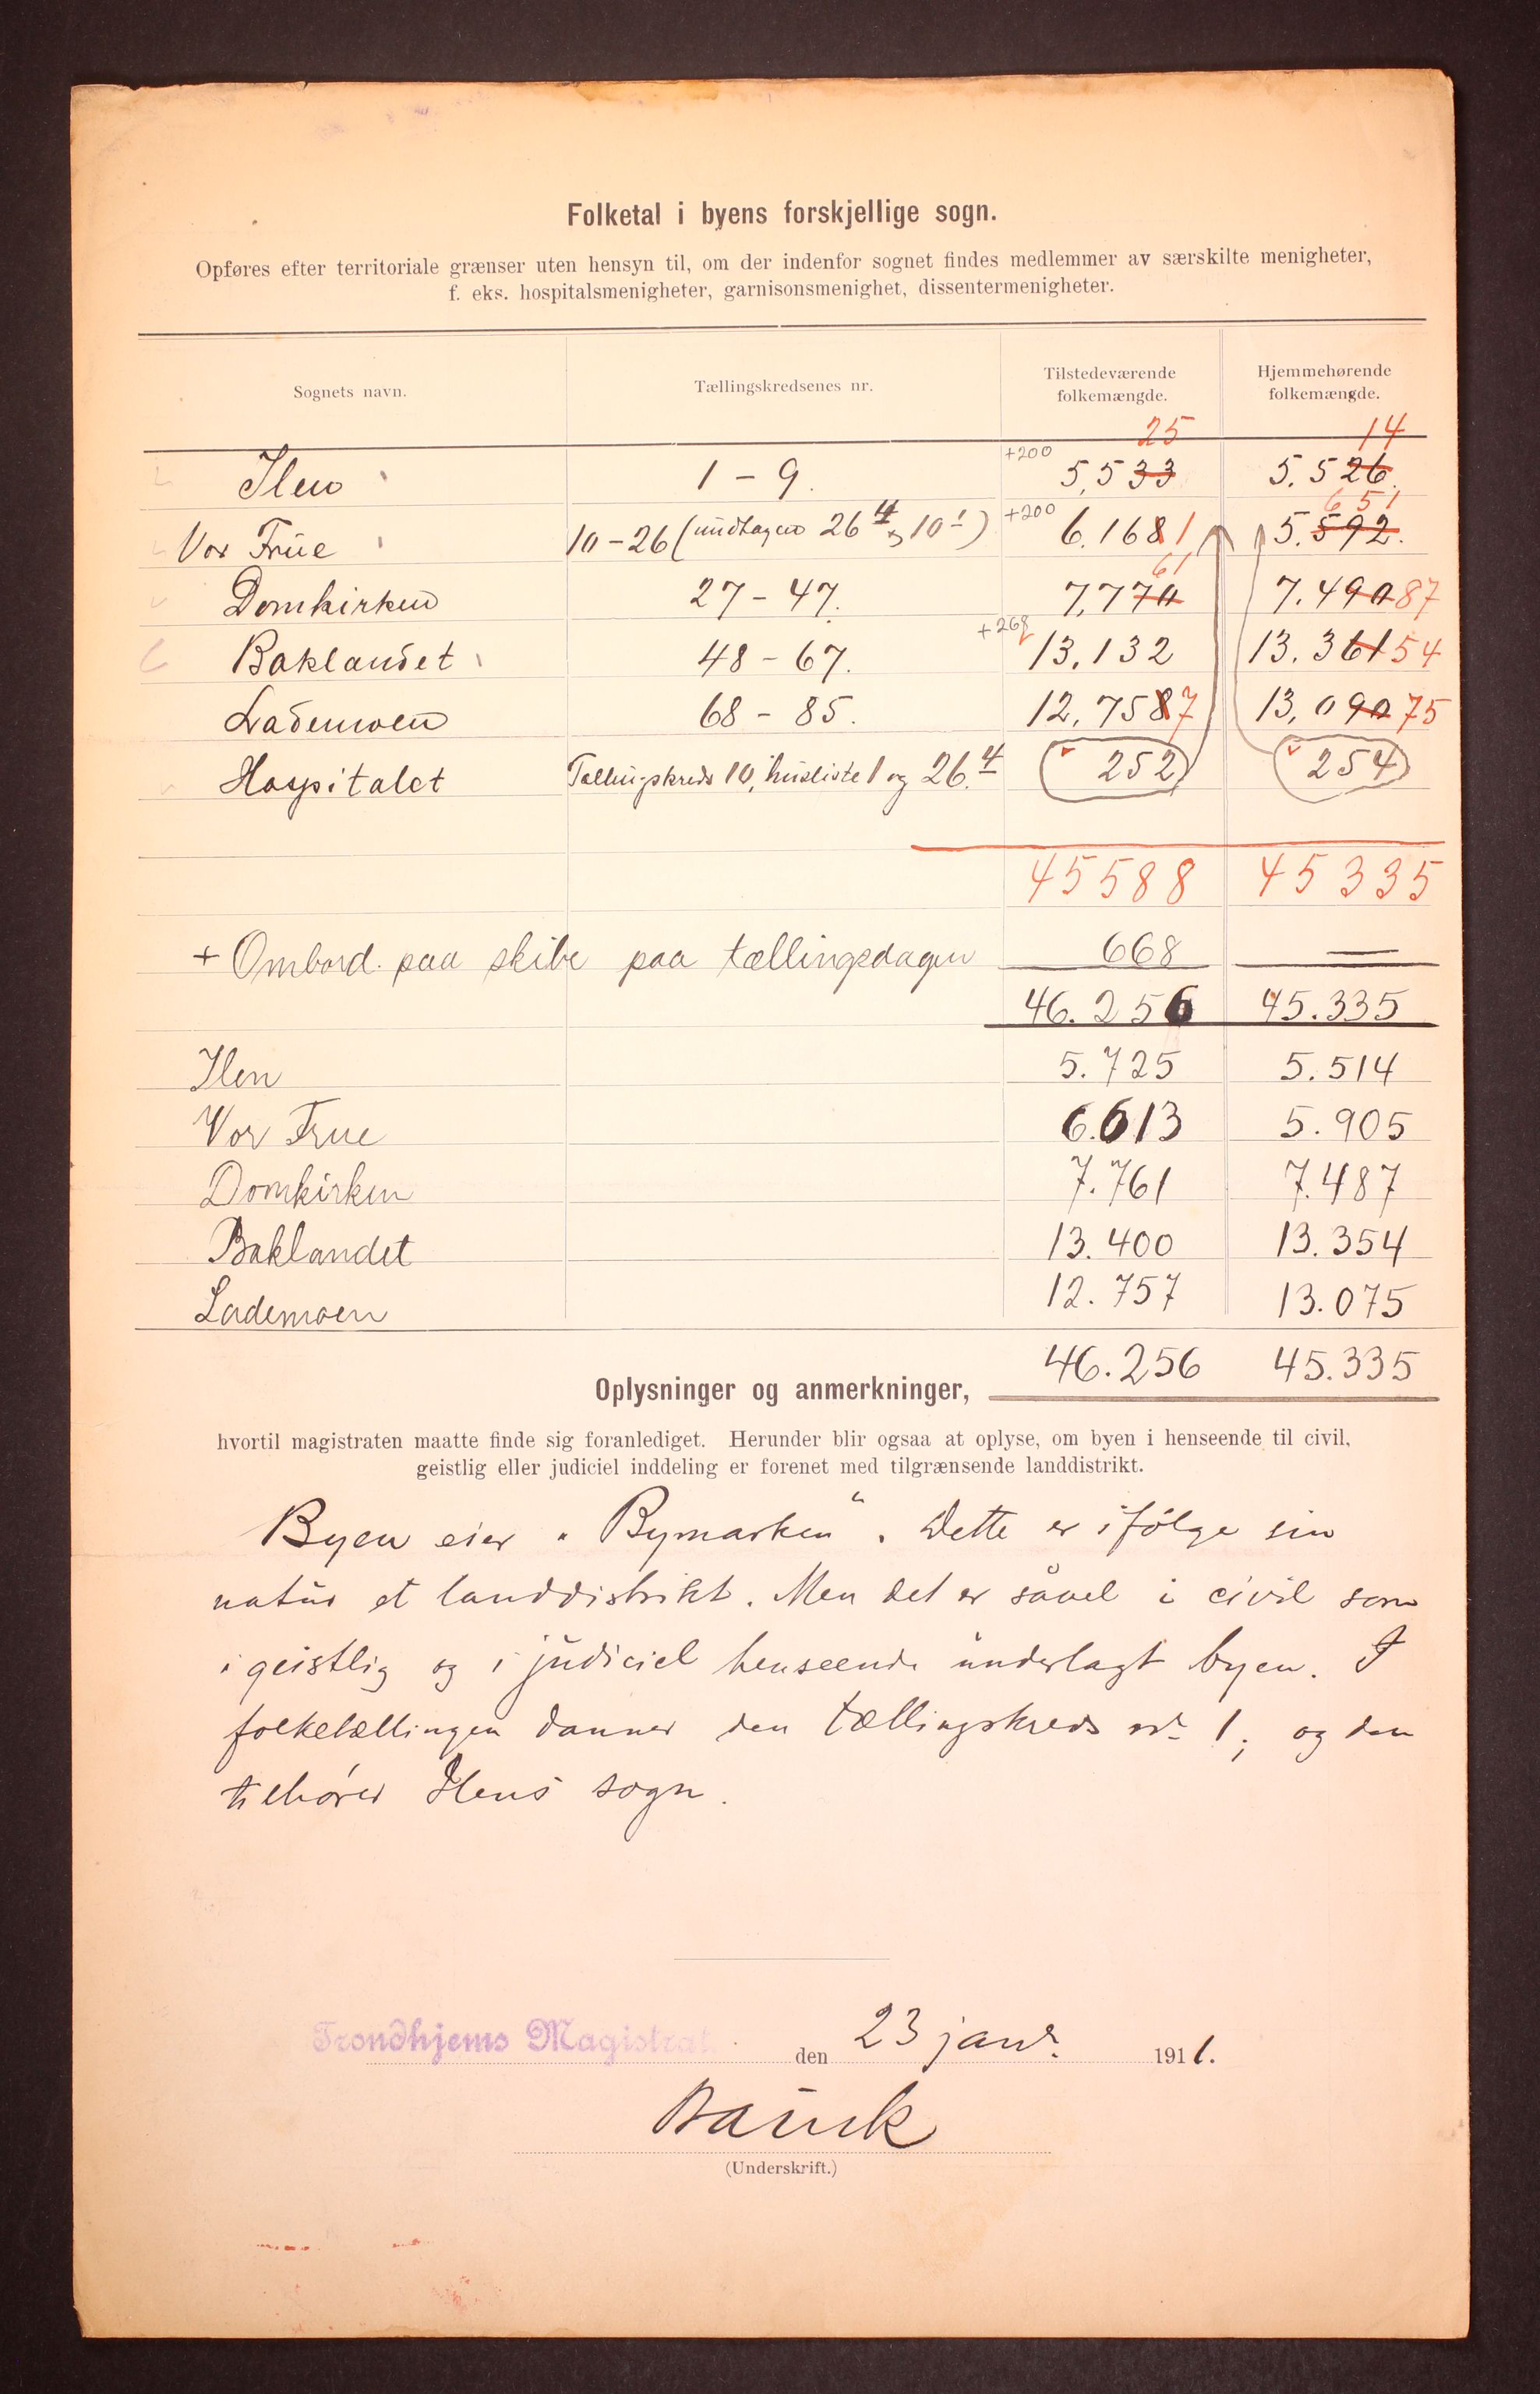 Folketal i byens forskjellige sogn.
Opføres efter territoriale grænser uten hensyn til, om der indenfor sognet findes medlemmer av særskilte menigheter,
f. eks. hospitalsmenigheter, garnisonsmenighet, dissentermenigheter.
Sognets navn. Tællingskredsenes nr. Tilstedeværende folkemængde. Hjemmehørende folkemængde.
25 14
Ilen 1 - 9. +200 5,533 5.526.
651
Vor Frue 10-26 (undtagen 26 4 og 10 1) +200 6.168 1 5.592.
61
Domkirken 27 - 47. 7,770 7.490 87
Baklandet 48 - 67. +268 13,132 13.361 54
Lademoen 68 - 85. 12,758 7 13,090 75
Hospitalet Tællingskreds 10, husliste 1 og 26.4 252 254
45588 45335
+ Ombord paa skibe paa tællingsdagen 668 —
46.256 45.335
Ilen 5.725 5.514
Vor Frue 6.613 5.905
Domkirken 7.761 7.487
Baklandet 13.400 13.354
Lademoen 12.757 13.075
46.256 45.335
Oplysninger og anmerkninger,
hvortil magistraten maatte finde sig foranlediget. Herunder blir ogsaa at oplyse, om byen i henseende til civil,
geistlig eller judiciel inddeling er forenet med tilgrænsende landdistrikt.
Byen eier "Bymarken". Dette er ifølge sin
natur et landdistrikt. Men det er såvel i civil som
i geistlig og i judiciel henseende underlagt byen. I
folketællingen danner den tællingskreds nr. 1; og den
tilhører Ilens sogn.
Trondhjems Magistrat. den 23 janr. 1911.
(Underskrift.)